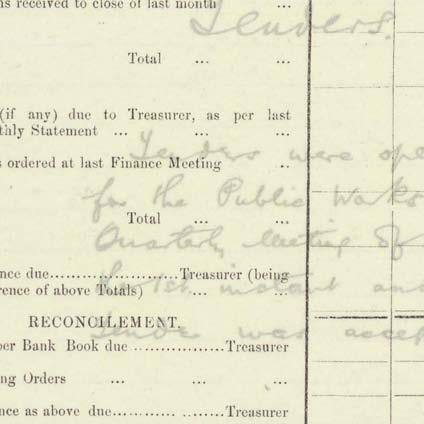 ns received to close of last month ...
Tenders.
Total ... ...
(if any) due to Treasurer, as per last
thly Statement ... ... ...
Tenders were ope
s ordered at last Finance Meeting ..
for the Public Works
Total ... ...
Quarterly Meeting of
nce due......................Treasurer (being
instant and
rence of above Totals) ... ...
RECONCILEMENT.
Tender was accep
per Bank Book due ................Treasurer
ng Orders ... ... ...
nce as above due............ ........Treasurer